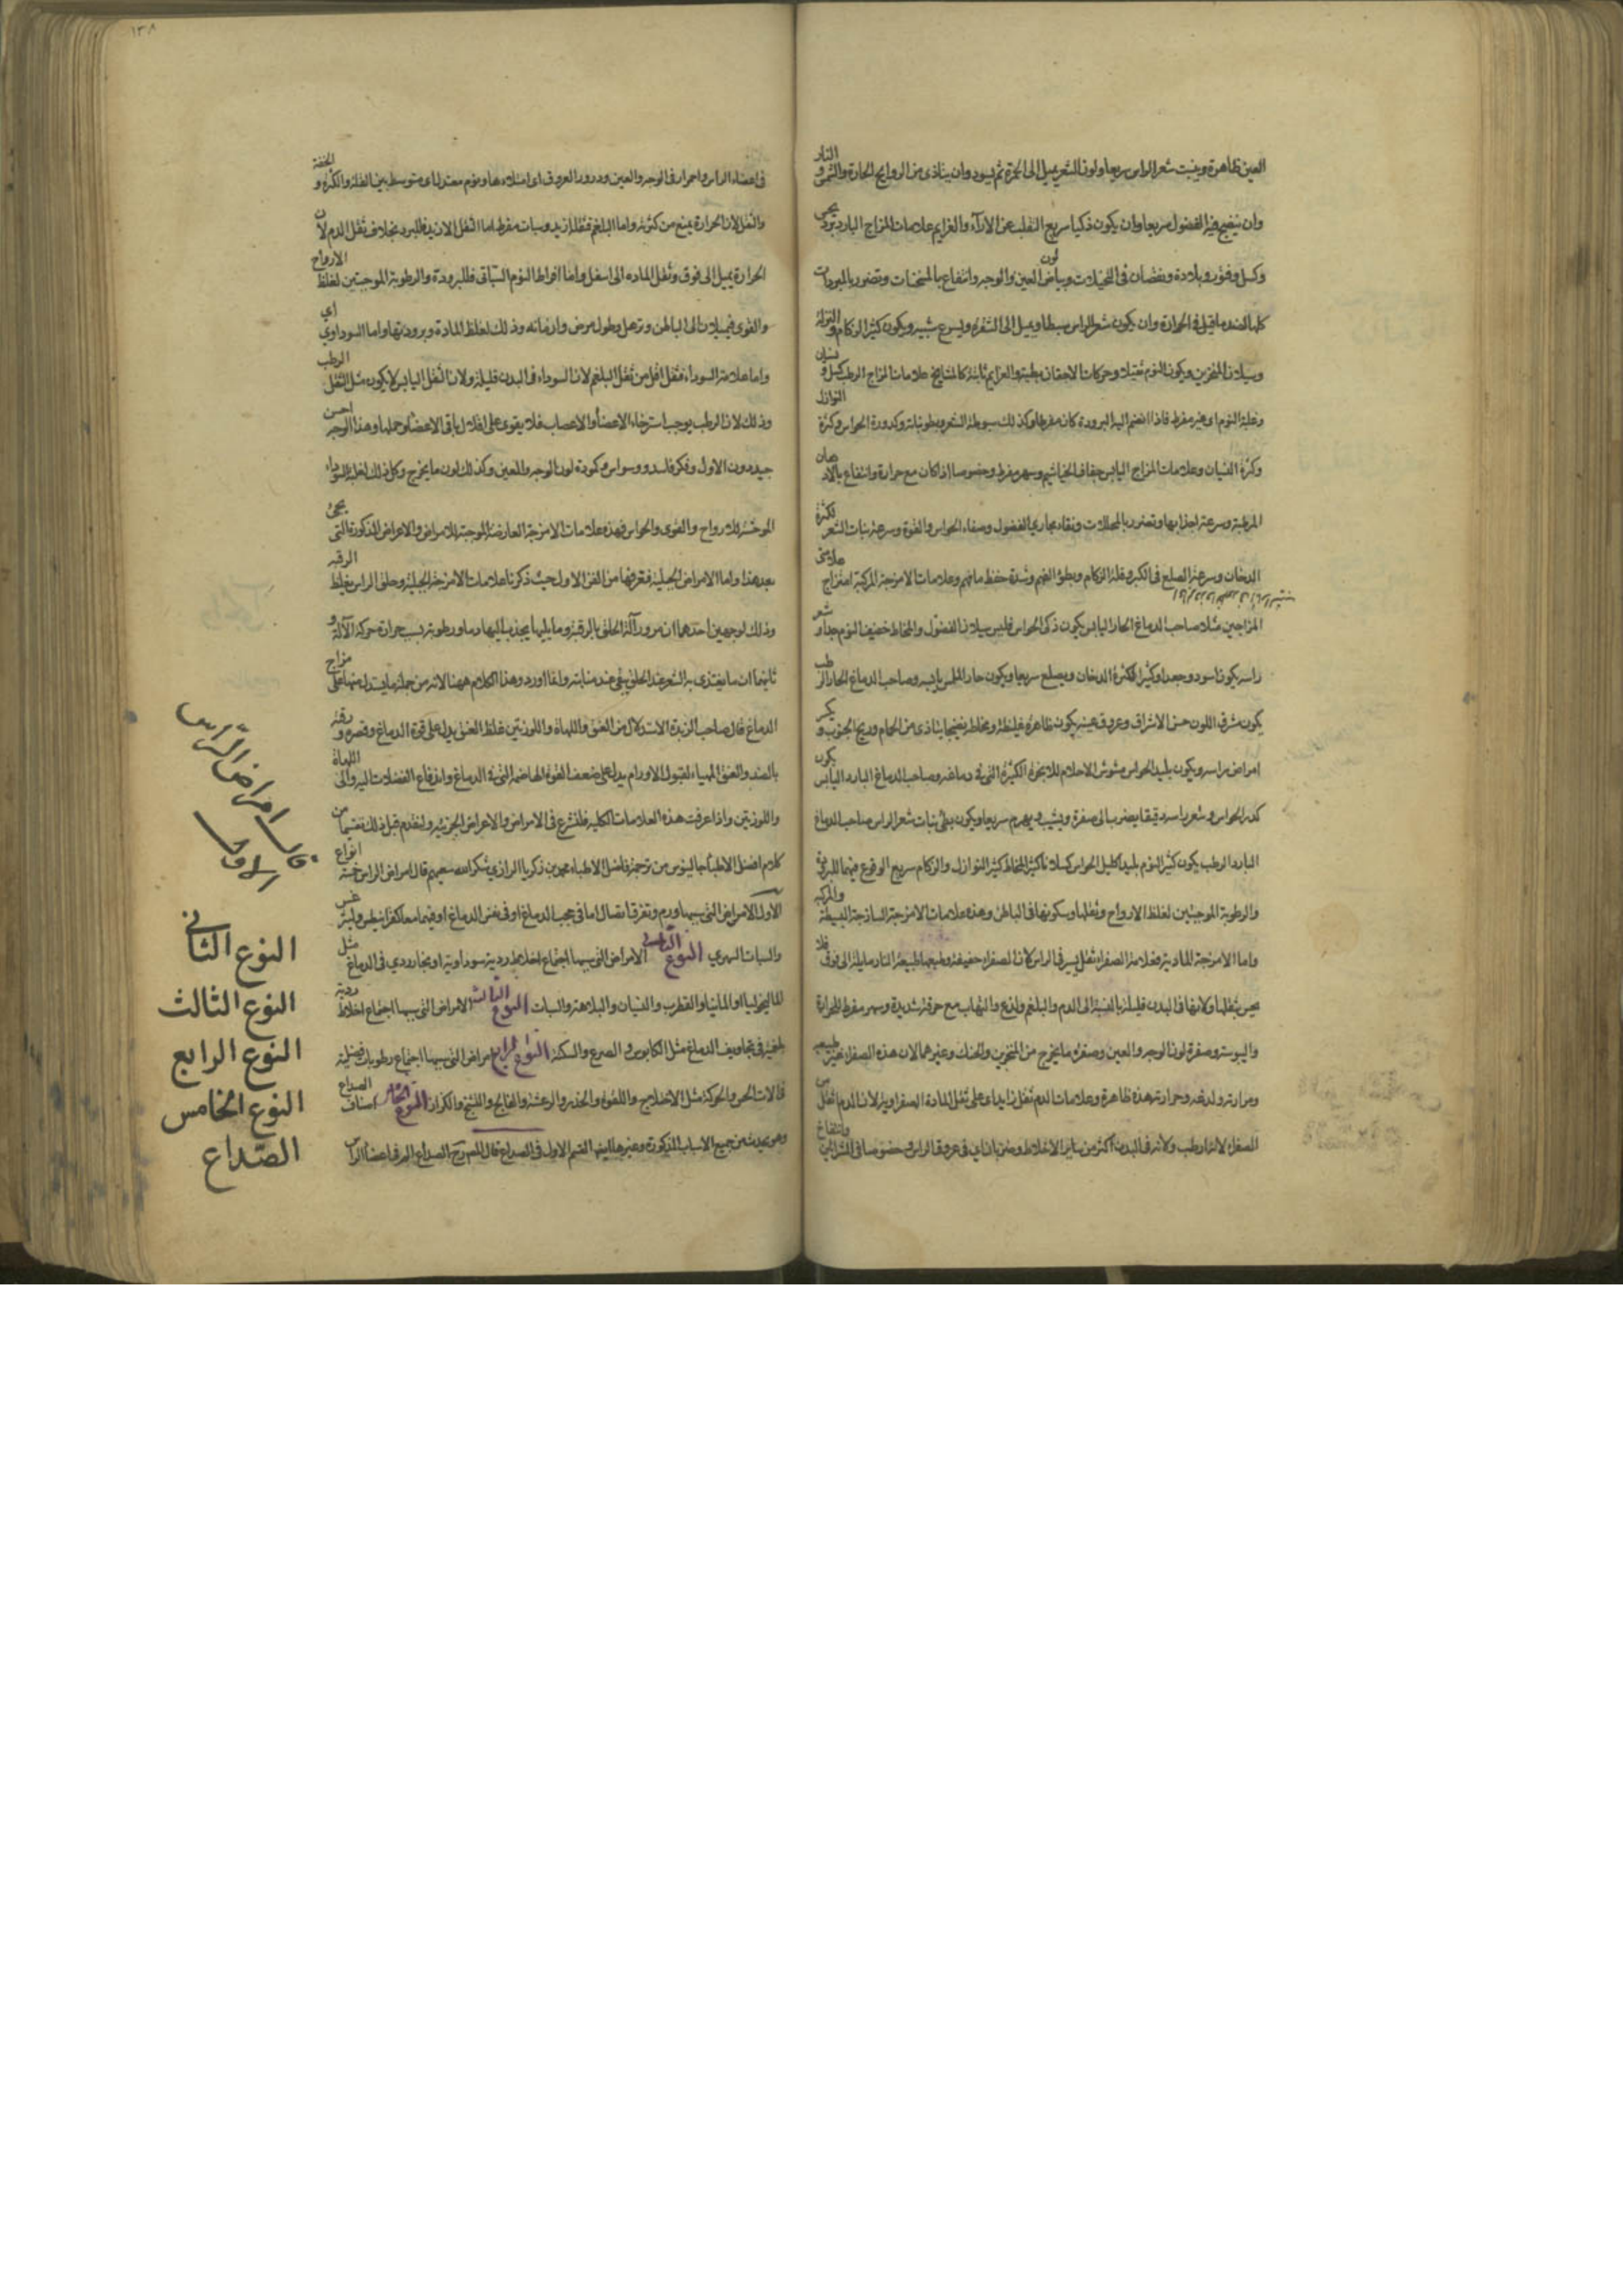 العين ظاهرة وينبت شعر الراس سريعا ولون الشعر يميل الى الحمرة ثم يسود وان يتاذى من الروايح الحارة والشمس و النار
وان ينضج فيه الفضول سريعا وان يكون ذكيا سريع التقلب عن الارآء والعزايم علامات المزاج البارد
وكسل وفتور وبلادة ونقصان فى التخيلات وبياض لون العين والوجه وانتفاع بالمسخنات وتضرر بالمبردات
كلها لضد ما قيل فى الحرارة وان يكون شعر الراس سبطا ويميل الى الشقرة ويسرع شيبه ويكون كثير الزكام والنزلة
وسيلان المنخرين ويكون النوم ثقيلا وحركات الاجفان بطيئة والعزايم ثابتة كالمشايخ علامات المزاج الرطب كسل و نسيان
وغلبة النوم اى غير مفرط فاذا انضم اليه البرودة كان مفرطا وكذلك سبوطة الشعر وبطو نباته وكدورة الحواس وكثرة النوازل
وكثرة الغثيان وعلامات المزاج اليابس جفاف الخياشيم وسهر مفرط وخصوصا اذا كان مع حرارة وانتفاع بالادهان
المرطبة وسرعة اجذابها وتضرر بالمحللات ونقاء مجارى الفضول وصفاء الحواس والقوة وسرعة نبات الشعر لكثرة
الدخان وسرعة الصلع فى الكبر وقلة الزكام وبطؤ الفهم وشدة حفظ ما فهم وعلامات الامزجة المركبة امتزاج علامتى
المزاجين مثلا صاحب الدماغ الحار اليابس يكون ذكى الحواس قليل سيلان الفضول والمخاط خفيف النوم جدا و شعر
راسه يكون اسود وجعدا وكثيرا لكثرة الدخان ويصلع سريعا ويكون حار الملمس يابسه وصاحب الدماغ الحار الرطب
يكون مشرق اللون حسن الاشراق وعروق عينيه يكون ظاهرة غليظة ومخاطه نضيجا يتاذى من الحمام وريح الجنوب و يكثر
امراض راسه ويكون بليد الحواس مشوش الاحلام للابخرة الكثيرة التى فى دماغه وصاحب الدماغ البارد اليابس يكون
كدر الحواس وشعر راسه دقيقا يضرب الى صفرة ويشيب ويهرم سريعا ويكون بطئ نبات شعر الراس صاحب الدماغ
البارد الرطب يكون كثير النوم بليدا كليل الحواس كسلانا كثير المخاط كثير النوازل والزكام سريع الوقوع فيهما للبرودة
والرطوبة الموجبتين لغلظ الارواح وثقلها وسكونها فى الباطن وهذه علامات الامزجة الساذجة البسيطة والمركبه
واما الامزجة المادية فعلامة الصفراء ثقل يسير فى الراس لان الصفراء خفيفة وطبعها طبيعة النار مايلة الى فوق فلا
يحس بثقلها ولانها فى البدن قليلة بالنسبة الى الدم والبلغم ولذع والتهاب مع حرقة شديدة وسهر مفرط للحرارة
واليبوسة وصفرة لون الوجه والعين وصفرة ما يخرج من المنخرين والحنك وغيرهما لان هذه الصفراء غير طبيعيه
ومرارته ولدغه وحرارته هذه ظاهرة وعلامات الدم ثقل زايد اى على ثقل المادة الصفراوية لان الدم اثقل من
الصفراء لانه ارطب ولانه فى البدن اكثر من ساير الاخلاط وضربان اى فى عروق الراس خصوصا فى الشرايين وانتفاخ
١٣٨
فى اعضاء الراس واحمرار فى الوجه والعين ودرور العروق اى امتلاءها ونوم معتدل اى متوسط بين القلة والكثرة و الخفة
والثقل لان الحرارة يمنع من كثرته واما البلغم فثقل ازيد وسبات مفرط اما الثقل الازيد فللبرد بخلاف ثقل الدم لان
الحرارة يميل الى فوق وثقل الماده الى اسفل واما افراط النوم السباتى فللبرودة والرطوبة الموجبتين لغلظ الارواح
والقوى فيميلان الى الباطن وترهل وطول مرض وازمانه وذلك لغلظ المادة وبرودتها واما السوداوى اى
واما علامة السوداء فثقل اقل من ثقل البلغم لان السوداء فى البدن قليلة ولان الثقل اليابس لا يكون مثل الثقل الرطب
وذلك لان الرطب يوجب استرخاء الاعضاء والاعصاب فلا يقوى على اقلال باقى الاعضاء وحملها وهذا الوجه احسن
جيد دون الاول وفكر فاسد ووسواس وكمودة لون الوجه والعين وكذلك لون ما يخرج وكل ذلك لغلبة السوداء
الموحشة للارواح والقوى والحواس فهذه علامات الامزجة العارضة الموجبة للامراض والاعراض المذكورة التى يجئ
بعد هذا واما الامراض الجبلية فتعرفها من الفن الاول حيث ذكرنا علامات الامزجة الجبلية وحلق الراس يغلظ الرقبه
وذلك لوجهين احدهما ان مرور آلة الحلق بالرقبة وما يليها يجذب اليها دما ورطوبة بسبب حرارة حركة الآلة و
ثانيهما ان ما يغتذى به الشعر عند الحلق يبقى عند منابته وانما اورد وهذا الكلام ههنا لانه من جملة ما يستدل منها على مزاج
الدماغ قال صاحب الزبدة الاستدلال من العنق واللهاة واللوزتين غلظ العنق يدل على قوة الدماغ وقصره و رقته
بالضد والعنق المهياء لقبول الاورام يدل على ضعف القوة الهاضمة التى فى الدماغ واندفاع الفضلات اليه والى اللهاة
واللوزتين واذا عرفت هذه العلامات الكليه فلنشرع فى الامراض والاعراض الجزئيه ولنقدم قبل ذلك تقسيما من
كلام افضل الاطباء جالينوس من ترجمة فاضل الاطباء محمد بن زكريا الرازي شكر الله سعيهم قال امراض الراس خمسة انواع
الاول الامراض التى سببها ورم وتفرق اتصال اما فى حجب الدماغ او فى نفس الدماغ او فيهما معا كقرانيطس وليثرغس
والسبات السهري النوع الثانى الامراض التى سببها اجتماع اخلاط ردية سوداوية او بخار ردي فى الدماغ مثل
الماليخوليا والمانيا والقطرب والغثيان والبلاهة والسبات النوع الثالث الامراض التى سببها اجتماع اخلاط ردية
بلغمية فى تجاويف الدماغ مثل الكابوس و الصرع والسكتة النوع الرابع امراض التى سببها اجتماع رطوبات فضلية
فى الات الحس والحركة مثل الاختلاج واللقوة والخدر والرعشة والفالج والتشنج والكزاز النوع الخامس اصناف الصداع
وهو يحدث من جميع الاسباب المذكورة وغيرها القسم الاول فى الصداع قال المصرح الصداع الم فى اعضاء الراس
قال امراض الرّاس
الاول
النوع الثانى
النوع الثالث
النوع الرابع
النوع الخامس
الصّداع